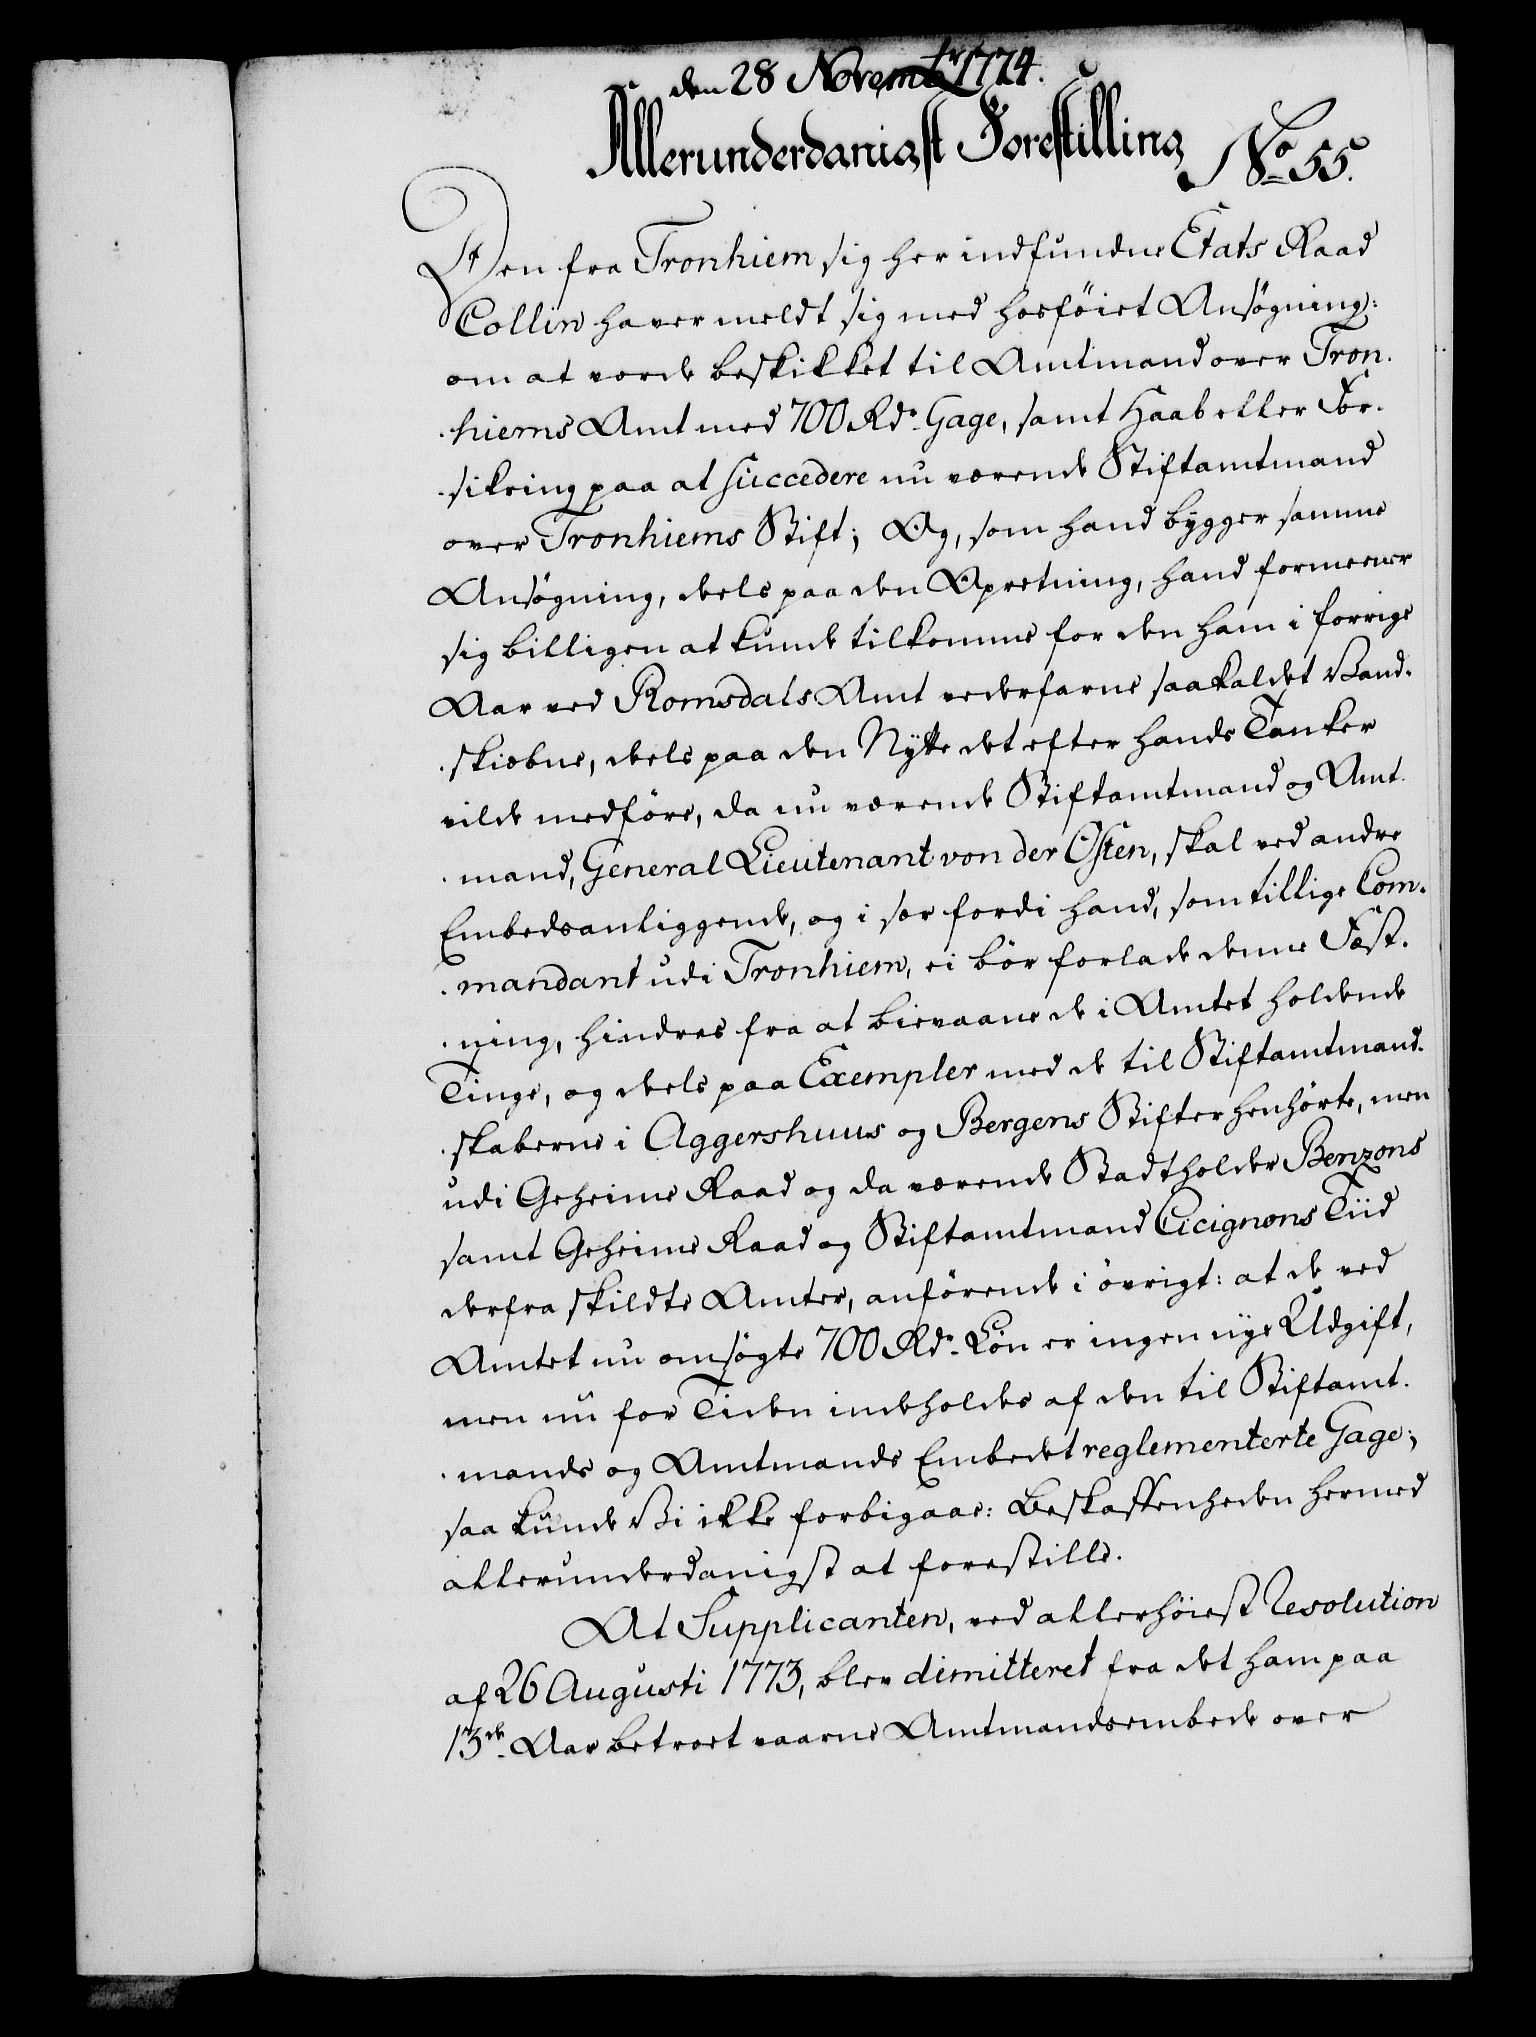 den 28 Novembr 1774.
Allerunderdanigst Forestilling
No 55.
Den fra Tronhiem sig her indfundne Etats Raad
Collin haver meldt sig med hosföiet Ansögning:
om at vorde beskikket til Amtmand over Tron-
hiems Amt med 700 Rdr Gage, samt Haab eller For-
sikring paa at succedere nu værende Stiftamtmand
over Tronhiems Stift; Og, som hand bygger samme
Ansögning, deels paa den Opretning, hand formeener
sig billigen at kunde tilkomme for den ham i forrige
Aar ved Romsdals Amt vederfarne saakaldet Vand-
skiebne, deels paa den Nytte det efter hands Tanker
vilde medföre, da nu værende Stiftamtmand og Amt-
mand, General Lieutenant von der Osten, skal ved andre
Embedsanliggende, og i sær fordi hand, som tillige Com-
mandant udi Tronhiem, ei bör forlade denne Fæst-
ning, hindres fra at bievaane de i Amtet holdende
Tinge, og deels paa Exempler med de til Stiftamtmand-
skaberne i Aggershuus og Bergens Stifter henhörte, men
udi Geheime Raad og da værende Stadtholder Benzons
samt Geheime Raad og Stiftamtmand Cicignons Tiid
derfra skildte Amter, anförende i övrigt: at de ved
Amtet nu omsögte 700 Rdr Lön er ingen nye Udgift,
men nu for Tiden indeholdes af den til Stiftamt-
mands og Amtmands Embedet reglementerte Gage;
saa kunde Vi ikke forbigaae: Beskaffenheden hermed
allerunderdanigst at forestille.
At Supplicanten, ved allerhöiest Resolution
af 26 Augusti 1773, blev dimitteret fra det ham paa
13de Aar betroet vaarne Amtmandsembede over